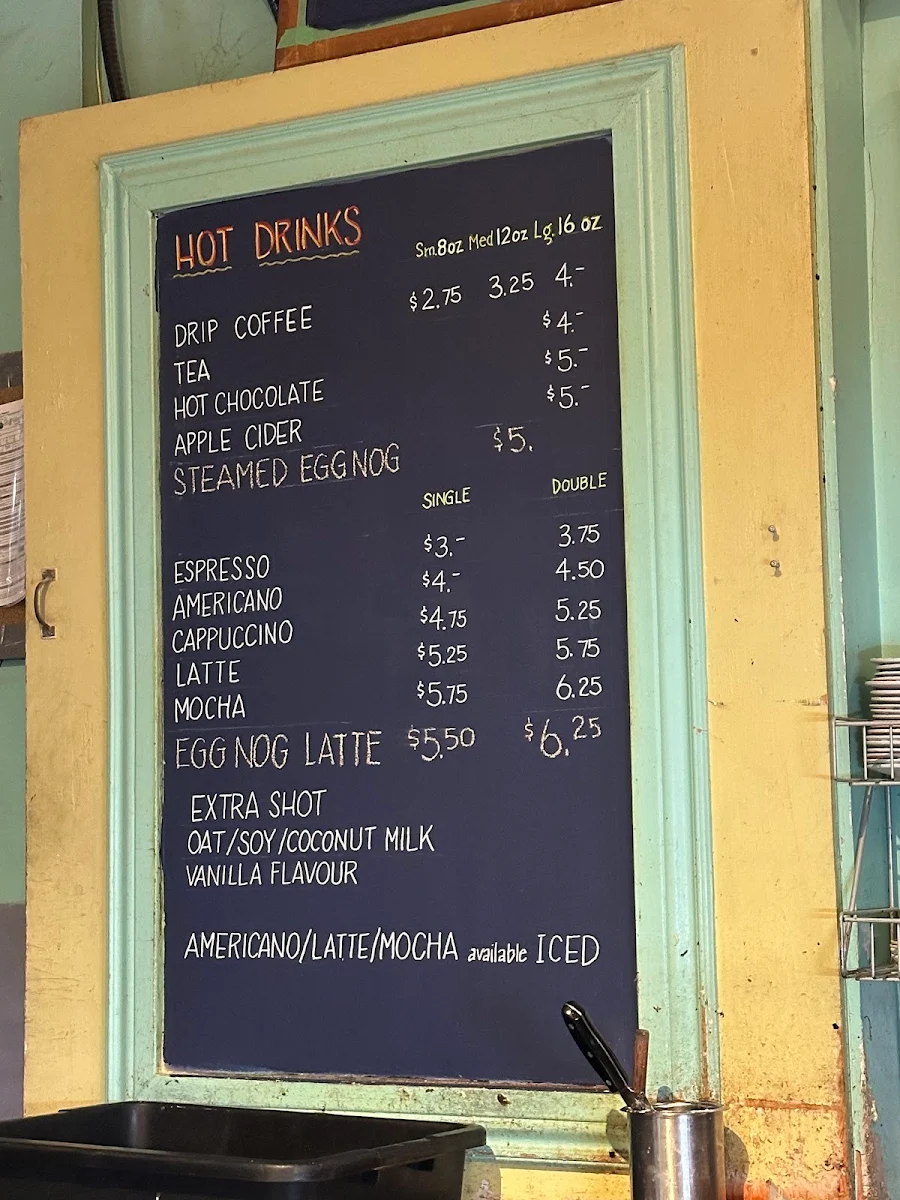 HOT DRINKS Sm. 8oz Med 12oz Lg. 16 oz
DRIP COFFEE $2.75 3.25 4.-
TEA $4.-
HOT CHOCOLATE $5.-
APPLE CIDER $5.-
STEAMED EGGNOG $5.
SINGLE DOUBLE
ESPRESSO $3.- 3.75
AMERICANO $4.- 4.50
CAPPUCCINO $4.75 5.25
LATTE $5.25 5.75
MOCHA $5.75 6.25
EGG NOG LATTE $5.50 $6.25
EXTRA SHOT
OAT/SOY/COCONUT MILK
VANILLA FLAVOUR
AMERICANO/LATTE/MOCHA available ICED